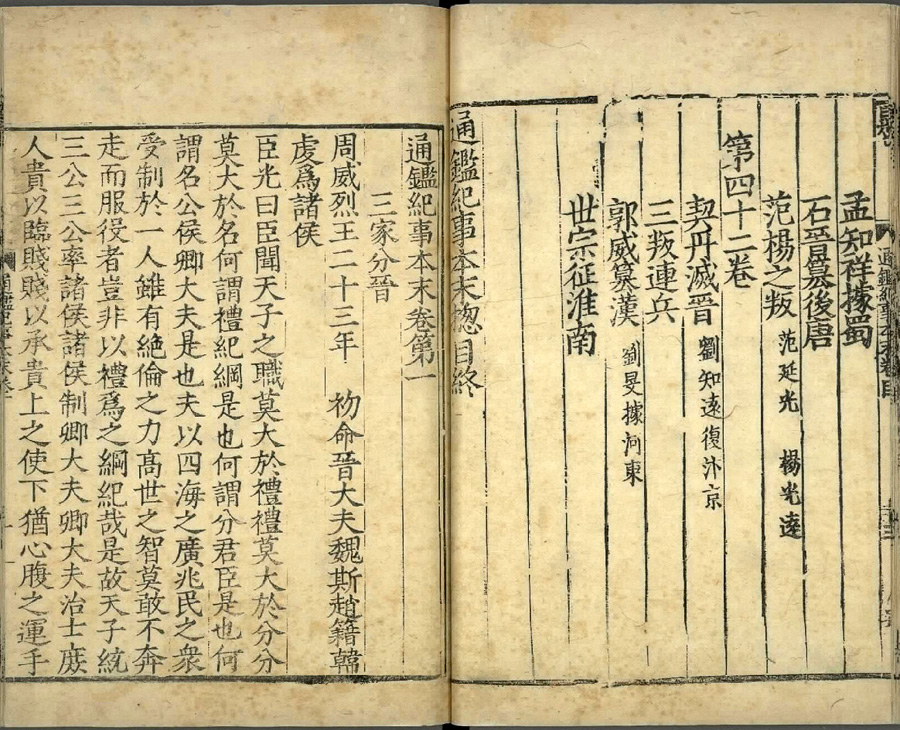 孟知祥據蜀
石晉篡後唐
范楊之叛 范延光 楊光遠
第四十二卷
契丹滅晉 劉知遠復汴京
三叛連兵
郭威篡漢 劉旻據河東
世宗征淮南
通鑑紀事本末緫目終
通鑑紀事本末卷第一
三家分晉
周威烈王二十三年 初命晉大夫魏斯趙籍韓
虔爲諸侯
臣光曰臣聞天子之職莫大於禮禮莫大於分分
莫大於名何謂禮紀綱是也何謂分君臣是也何
謂名公侯卿大夫是也夫以四海之廣兆民之衆
受制於一人雖有絶倫之力高世之智莫敢不奔
走而服役者豈非以禮爲之綱紀哉是故天子統
三公三公率諸侯諸侯制卿大夫卿大夫治士庶
人貴以臨賤賤以承貴上之使下猶心腹之運手